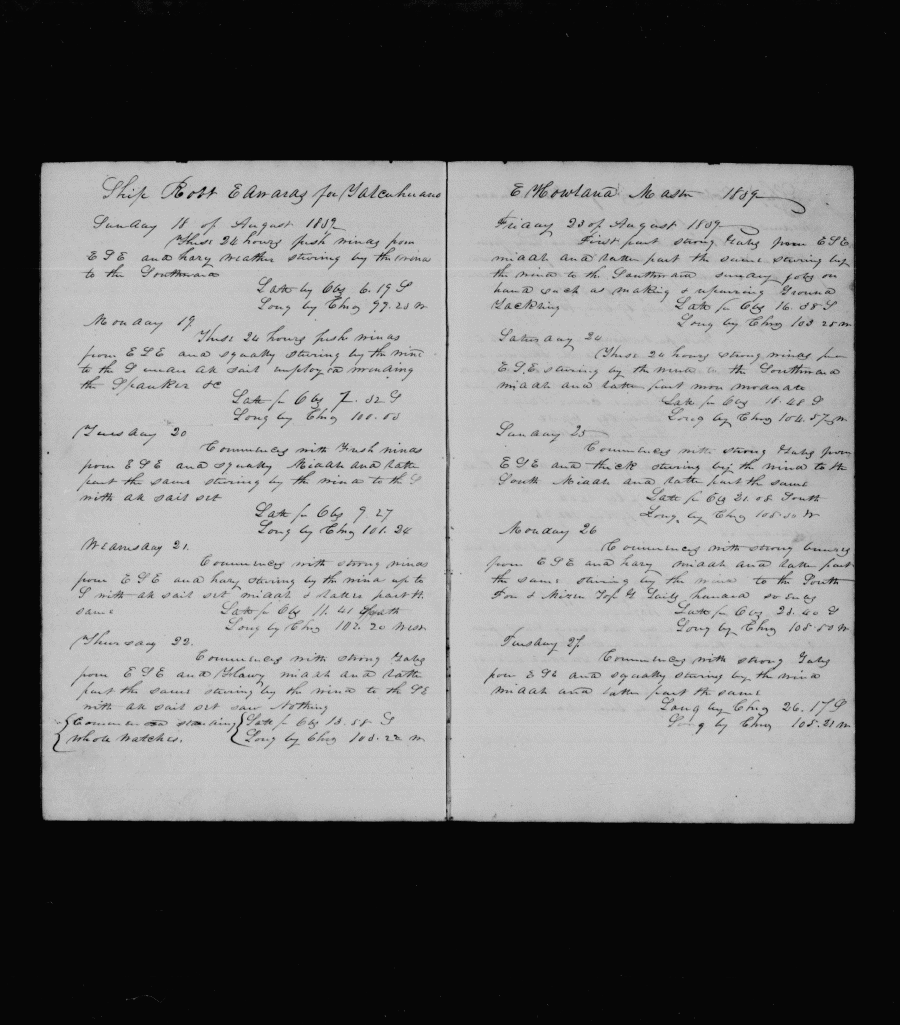 Ship Robt Edwards for Talcuhuano
Sunday 18 of August 1839
These 24 hours fresh winds from
ESE and hazy weather stering by the wind
to the Southward
Latt by Obs 6.19 S
Long by Chro 99.23 W
Monday 19
These 24 hours fresh winds
from ESE and squally stering by the wind
to the S under all sail employd in mending
the Spanker &c
Latt pr Obs 7.52 S
Long by Chro 100.03
Tuesday 20
Commences with Fresh winds
from ESE and squally Middle and latter
part the same stering by the wind to the S
with all sail set
Latt pr Obs 9.27
Long by Chro 101.24
Wednsday 21.
Commences with strong winds
from ESE and hazy stering by the wind up to
S with all sail set middle & latter part the
same Latt pr Obs 11.41 South
Long by Chro 102.20 West
Thursday 22.
Commences with strong Gales
from ESE and middle and latter
part the same stering by the wind to the SE
with all sail set saw Nothing
Commenced standing Latt pr Obs 13.58 S
whole watches. Long by Chro 103.22 W
E Howland Master 1839
Friday 23 of August 1839
First part strong Gales from ESE
middle and latter part the same stering by
the wind to the Southward sunday jobs on
hand such as making & repairing Ground
Tackling Latt pr Obs 16.38 S
Long by Chro 103 25 W
Saturday 24
These 24 hours strong winds from
ESE stering by the wind to the Southward
middle and latter part more moderate
Latt pr Obs 18.48 S
Long by Chro 104.57 W
Sunday 25
Commences with strong Gales from
ESE and thick stering by the wind to the
South Middle and latter part the same
Latt pr Obs 21.08 South
Long. by Chro 105.30 W
Monday 26
Commences with strong breezes
from ESE and hazy middle and latter part
the same stering by the wind to the South
For & Mizen Top G Sails handed so ends
Latt pr Obs 23.40 S
Long by Chro 105.50 W
Tuesday 27
Commences with strong Gales
from ESE and squally stering by the wind
middle and latter part the same
Long by Chro 26.17 S
Long by Chro 105.21 W